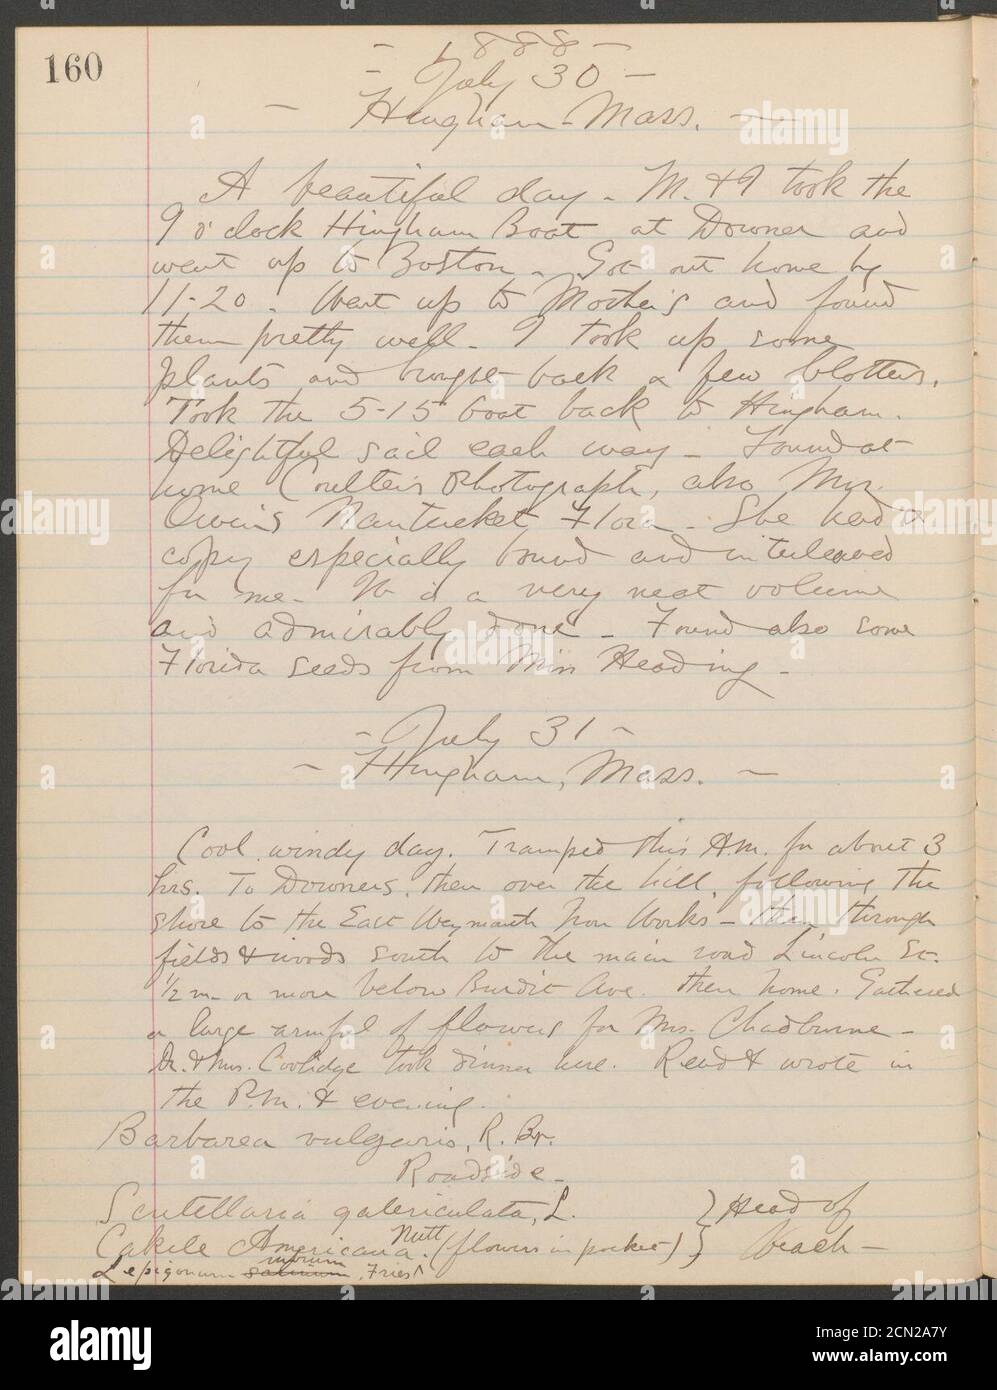 160
- 1888 -
- July 30 -
- Hingham - Mass. -
A beautiful day - M. & I took the
9 o'clock Hingham Boat at Downer and
went up to Boston - Got out home by
11-20. Went up to Mother's and found
them pretty well - I took up some
plants and brought back a few blotters.
Took the 5-15 boat back to Hingham.
Delightful sail each way - Found at
home Coulter's Photograph, also Mrs.
Owen's Nantucket Flora - She had a
copy especially bound and interleaved
for me - It is a very neat volume
and admirably done - Found also some
Florida seeds from Miss Heading -
- July 31 -
- Hingham, Mass. -
Cool windy day. Tramped this A.M. for about 3
hrs. To Downers, then over the hill, following the
shore to the East Weymouth Iron Works - then through
fields & woods south to the main road Lincoln St.
1/2 m. or more below Burdit Ave. then home. Gathered
a large armful of flowers for Mrs. Chadbourne -
Dr. & Mrs. Coolidge took dinner here. Read & wrote in
the P.M. & evening.
Barbarea vulgaris, R. Br.
Roadside -
Scutellaria galericulata, L. } Head of
Cakile Americana Nutt. (flowers in pocket) } beach -
Lepigonum salinum, Fries
alamy
alamy
alamy
alamy
alamy
alamy
alamy
Image ID: 2CN2A7Y
www.alamy.com